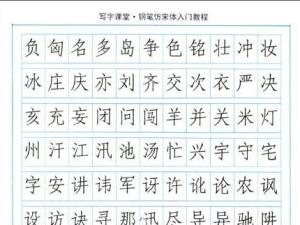 写字课堂·钢笔仿宋体入门教程
负匈名多岛争色铭壮冲妆
冰庄庆亦刘齐交次衣严决
亥充妄闭问闯羊并关米灯
州汗江汛池汤忙兴宇守宅
字安讲讳军讶许讹论农讽
设访诀寻那迅尽异导驰阱